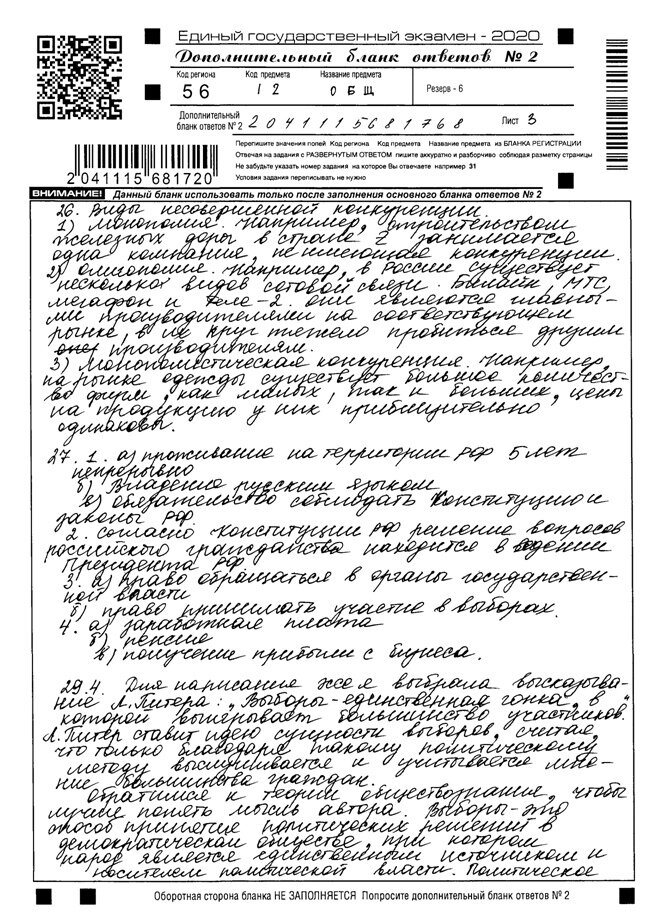 Единый государственный экзамен - 2020
Дополнительный бланк ответов № 2
Код региона Код предмета Название предмета
56 12 ОБЩ Резерв - 6
Дополнительный бланк ответов № 2 2041115681768 Лист 3
Перепишите значения полей Код региона Код предмета Название предмета из БЛАНКА РЕГИСТРАЦИИ
Отвечая на задания с РАЗВЕРНУТЫМ ОТВЕТОМ пишите аккуратно и разборчиво соблюдая разметку страницы
Не забудьте указать номер задания на которое Вы отвечаете например 31
Условия задания переписывать не нужно
2 041115 681720
ВНИМАНИЕ! Данный бланк использовать только после заполнения основного бланка ответов № 2
26. Виды несовершенной конкуренции.
1) Монополия. Например, строительством
железных дорог в стране Z занимается
одна компания, не имеющая конкуренции.
2) Олигополия. Например, в России существует
несколько видов сотовой связи. Билайн, МТС,
Мегафон и Теле-2. Они являются главны-
ми производителями на соответствующем
рынке, в их круг тяжело пробиться другим
производителям.
3) Монополистическая конкуренция. Например,
на рынке одежды существует большое количест-
во фирм, как малых, так и больших, цены
на продукцию у них приблизительно
одинаковы.
27. 1. а) проживание на территории РФ 5 лет
непрерывно
б) Владение русским языком
в) обязательство соблюдать Конституцию и
законы РФ.
2. Согласно Конституции РФ решение вопросов
российского гражданства находится в ведении
Президента РФ.
3. а) право обращаться в органы государствен-
ной власти
б) право принимать участие в выборах.
4. а) заработная плата
б) пенсия
в) получение прибыли с бизнеса.
29.4. Для написания эссе я выбрала высказыва-
ние Л. Питера: „Выборы - единственная гонка, в
которой выигрывает большинство участников."
Л. Питер ставит идею сущности выборов, считая,
что только благодаря такому политическому
методу выслушивается и учитывается мне-
ние большинства граждан.
Обратимся к теории обществознания, чтобы
лучше понять мысль автора. Выборы - это
способ принятия политических решений в
демократическом обществе, при котором
народ является единственным источником и
носителем политической власти. Политическое
Оборотная сторона бланка НЕ ЗАПОЛНЯЕТСЯ Попросите дополнительный бланк ответов № 2